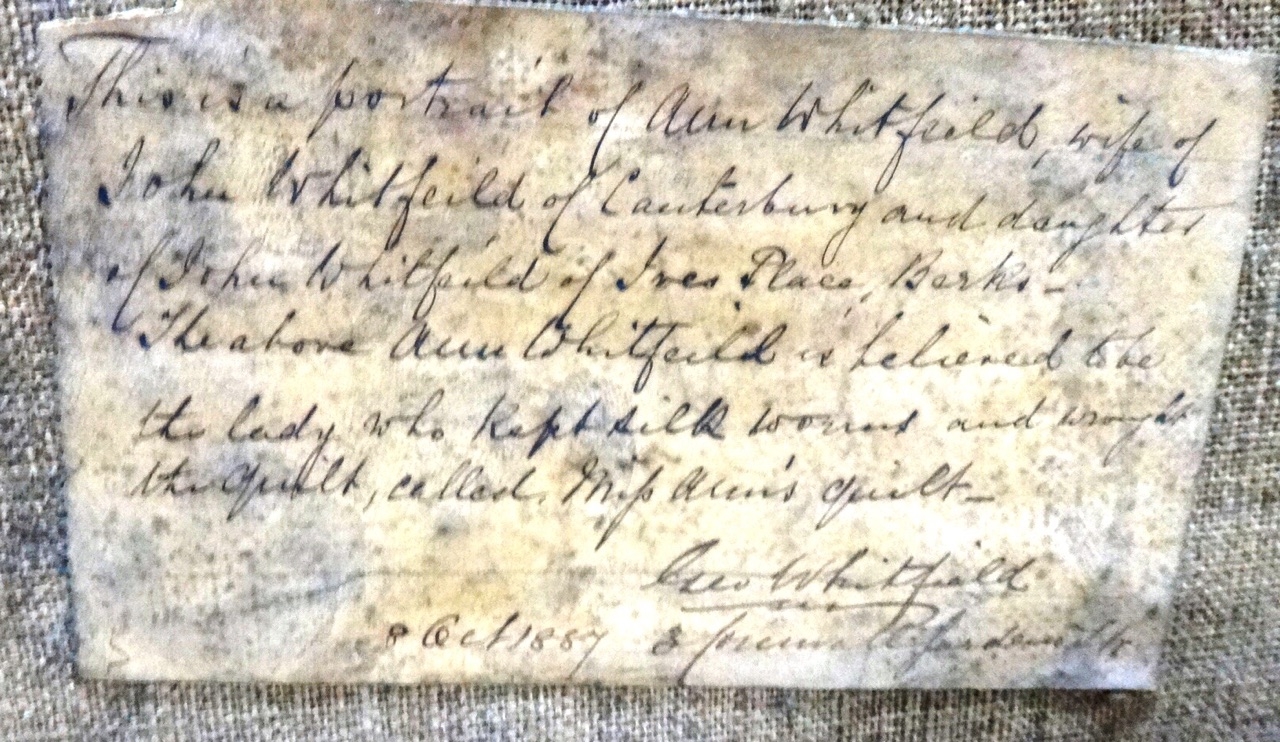 This is a portrait of Ann Whitfeild, wife of
John Whitfeild of Canterbury and daughter
of John Whitfeild of Ives Place, Berks -
The above Ann Whitfeild is believed to be
the lady who kept silk worms and wrought
the quilt, called, Miss Ann's quilt -
Geo Whitfield
8 Oct 1887 3